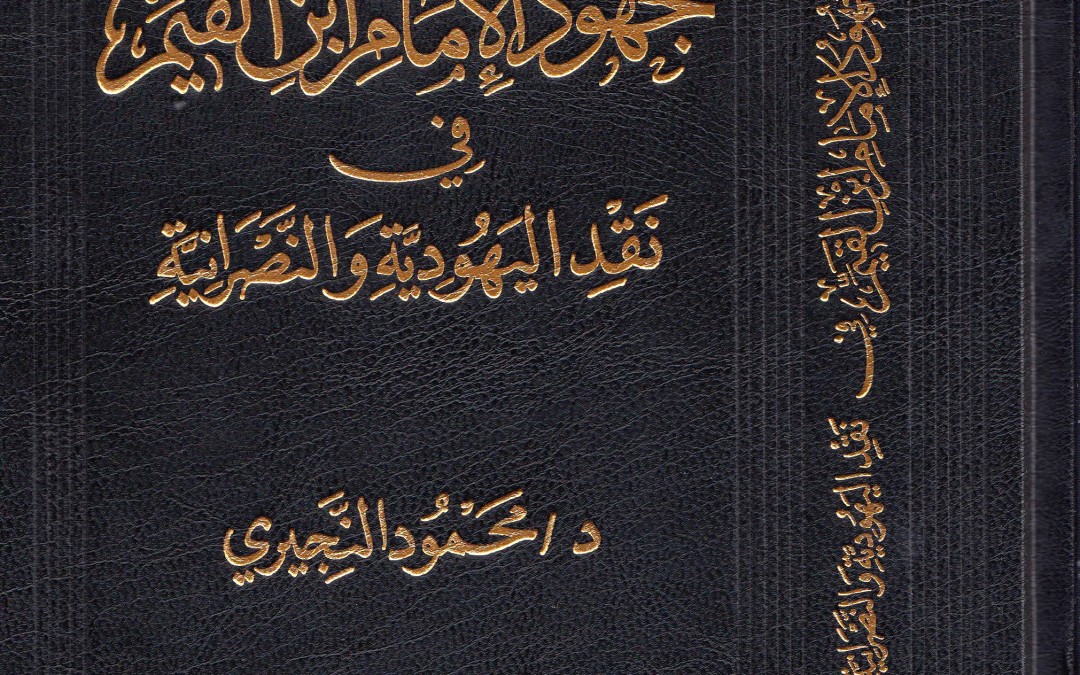 جهود الإمام ابن القيم
في
نَقْدِ اليَهُودِيَّةِ وَالنَّصْرَانِيَّةِ
د/محَمْوُد النِّجيري
جهود الإمام ابن القيم في نقد اليهودية والنصرانية